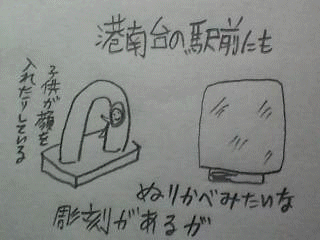 港南台の駅前にも
子供が顔を
入れたりしている
ぬりかべみたいな
彫刻があるが